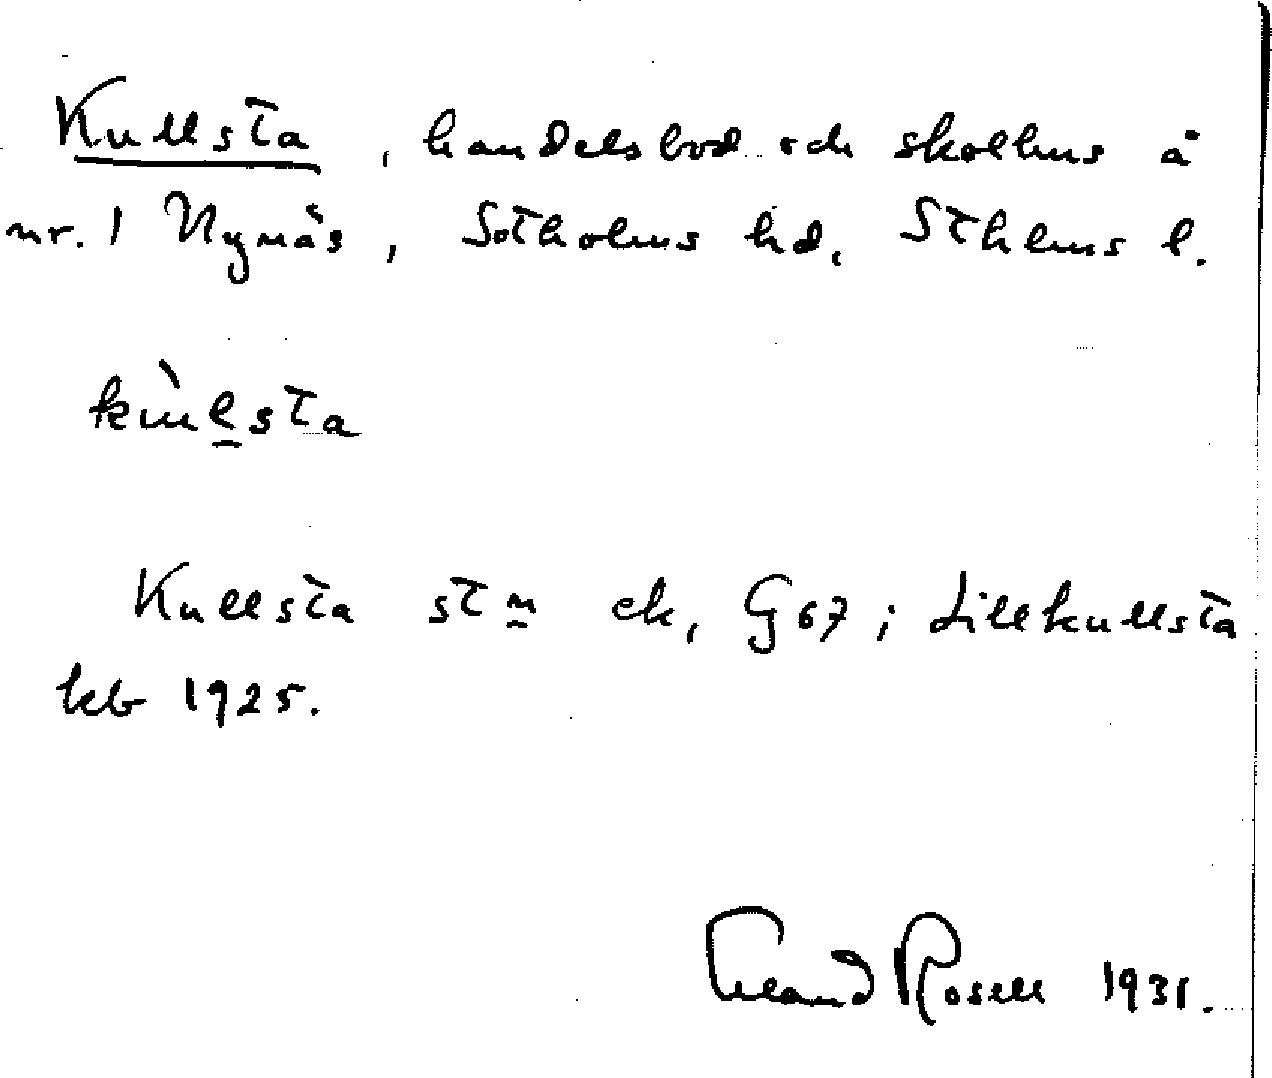 Kullsta, handelsbod och skolhus å
nr. 1 Nynäs, Sotholms hd, Sthlms l.
kùlsta
Kullsta stn ek, G67; Lillkullsta
kb 1925.
Erland Rosell 1931.